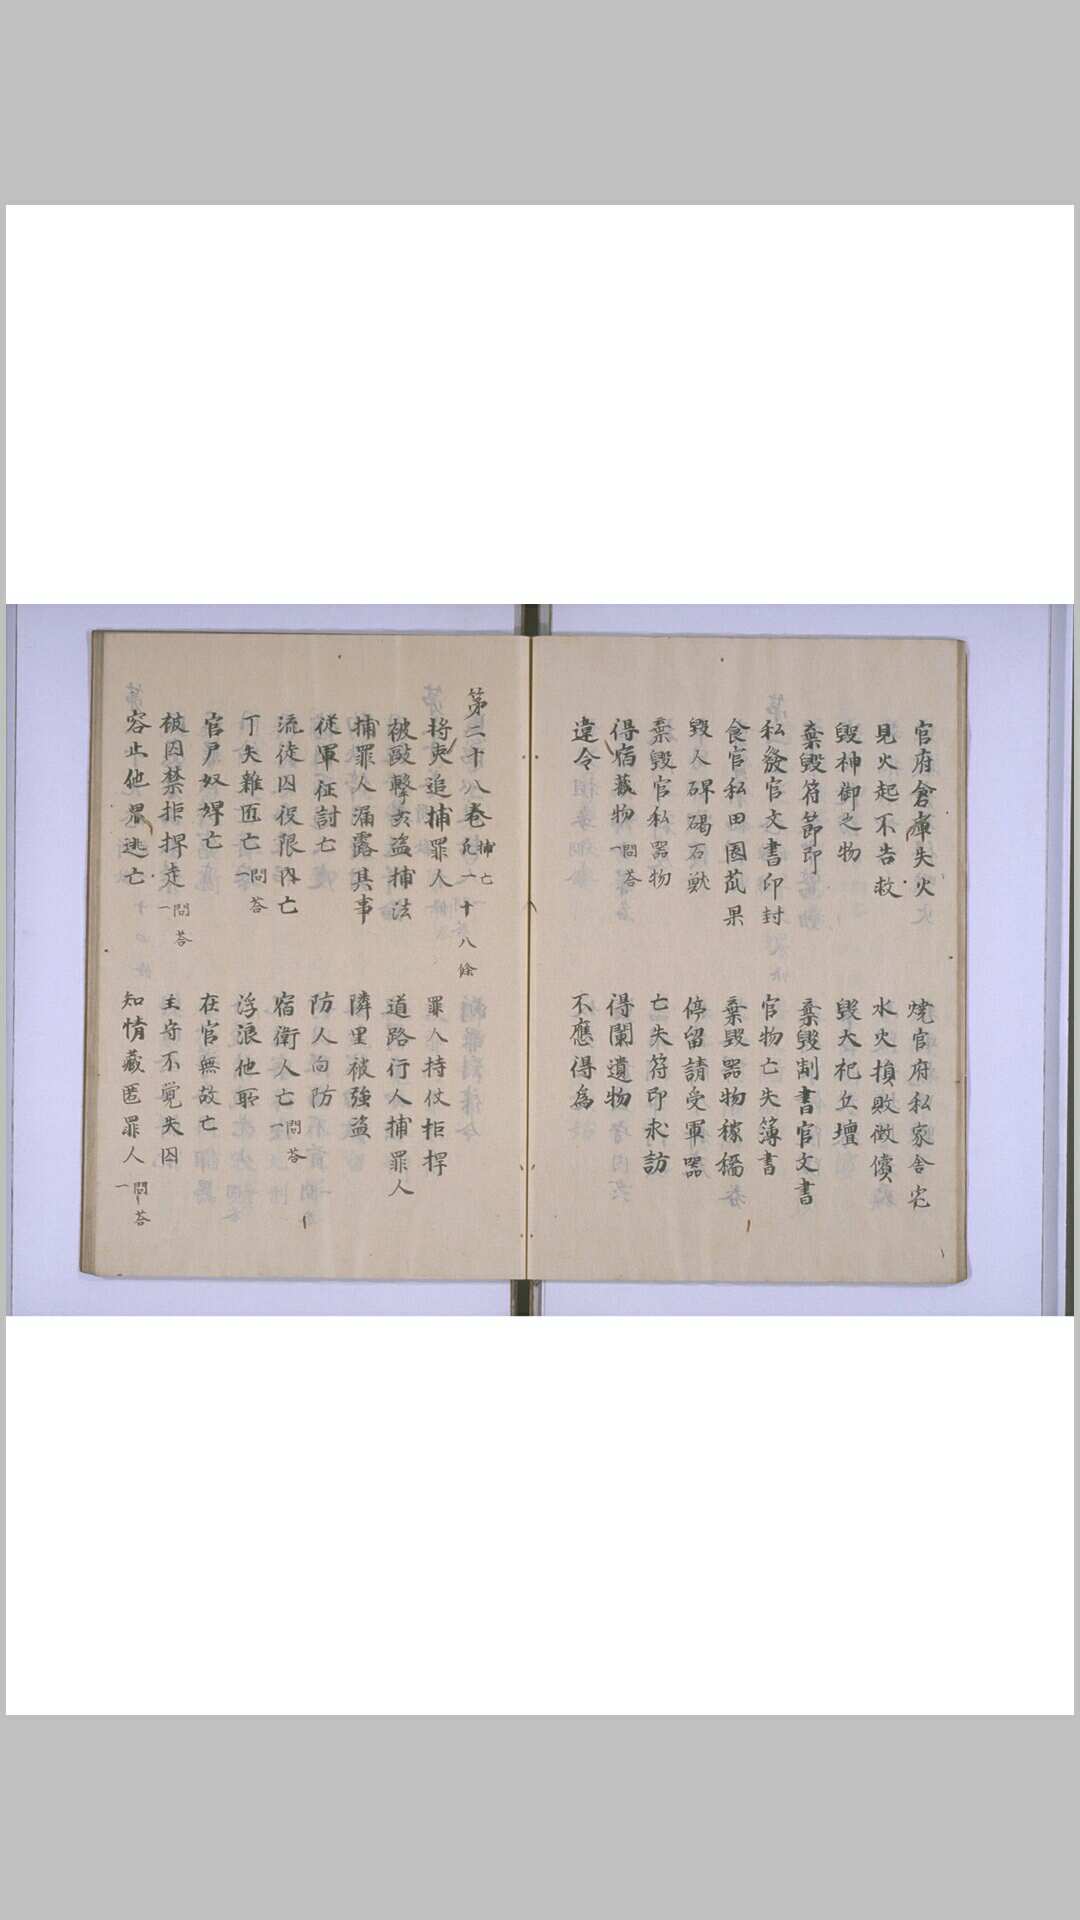 官府倉庫失火 燒官府私家舍宅
見火起不告救 水火損敗徵償
毀神御之物 毀大祀丘壇
棄毀符節印 棄毀制書官文書
私發官文書印封 官物亡失簿書
食官私田園苽果 棄毀器物稼穡
毀人碑碣石獣 停留請受軍器
棄毀官私器物 亡失符印求訪
得宿蔵物 問答一 得闌遺物
違令 不應得為
第二十八卷 捕亡 凡一十八條
将吏追捕罪人 罪人持仗拒捍
被毆擊姧盗捕法 道路行人捕罪人
捕罪人漏露其事 隣里被強盗
従軍征討亡 防人向防
流徒囚役限内亡 宿衛人亡 問答一
丁夫雜匠亡 問答一 浮浪他所
官戸奴婢亡 在官無故亡
被囚禁拒捍走 問答一 主守不覚失囚
容止他界逃亡 知情藏匿罪人 問答一